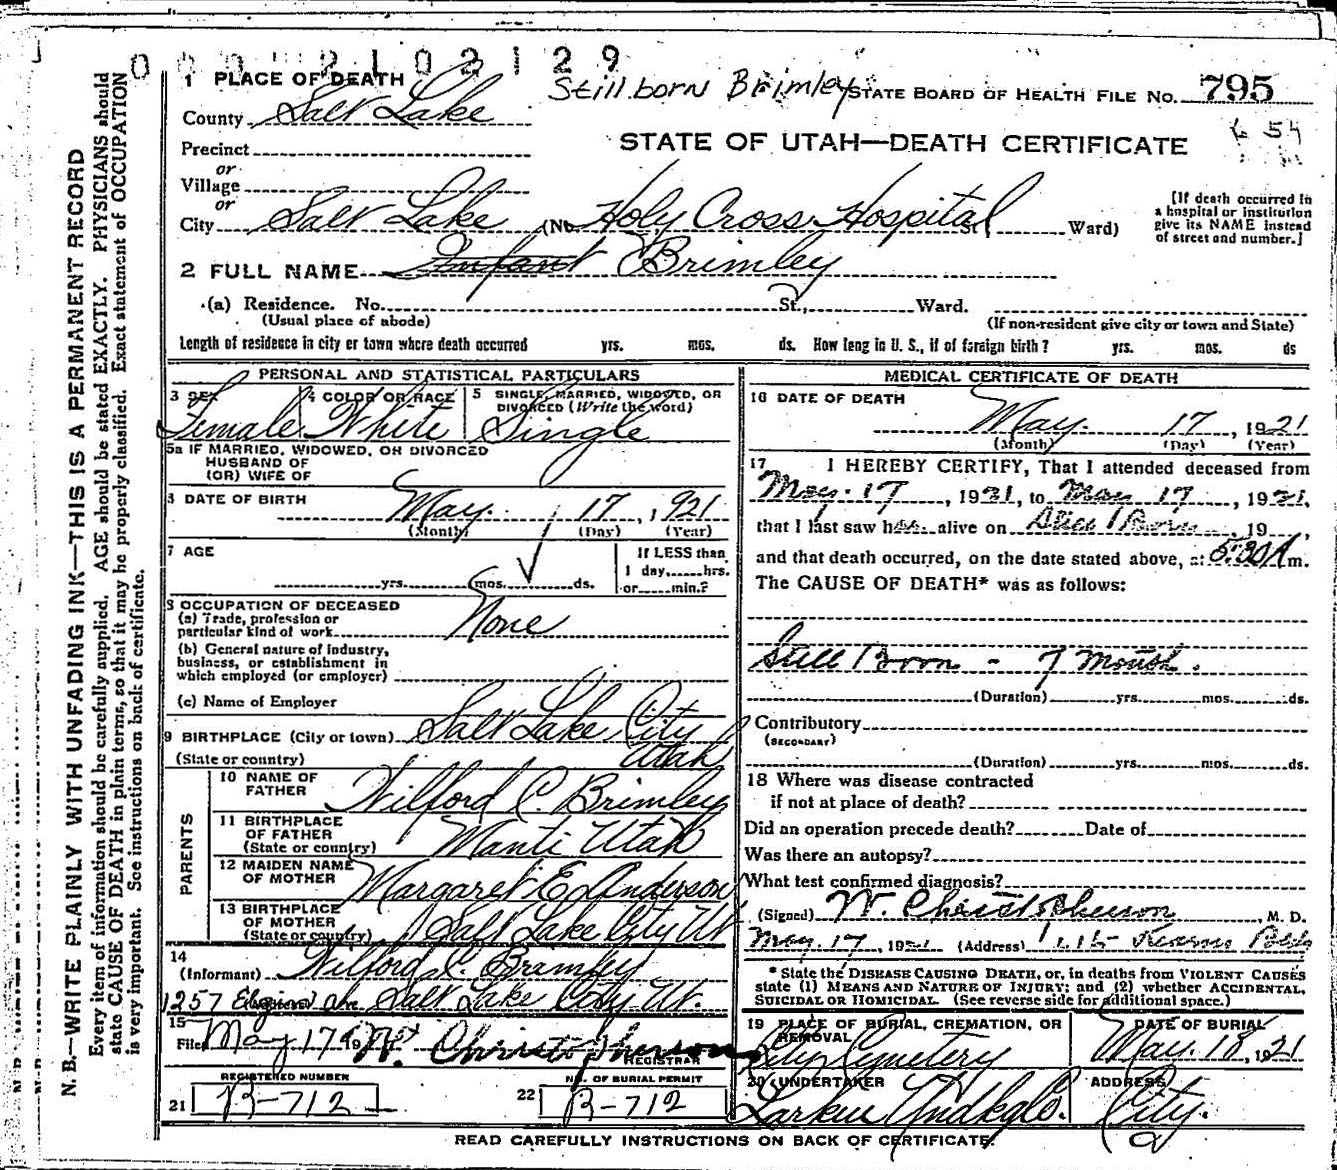 0002102129
Stillborn Brimley STATE BOARD OF HEALTH FILE NO. 795
1 PLACE OF DEATH
County Salt Lake
STATE OF UTAH—DEATH CERTIFICATE
Precinct
or
Village
or
City Salt Lake (No. Holy Cross Hospital St., Ward)
[If death occurred in
a hospital or institution
give its NAME instead
of street and number.]
2 FULL NAME Infant Brimley
(a) Residence. No. St., Ward.
(Usual place of abode) (If non-resident give city or town and State)
Length of residence in city or town where death occurred yrs. mos. ds. How long in U. S., if of foreign birth? yrs. mos. ds
PERSONAL AND STATISTICAL PARTICULARS
3 SEX 4 COLOR OR RACE 5 SINGLE, MARRIED, WIDOWED, OR
DIVORCED (Write the word)
Female White Single
5a IF MARRIED, WIDOWED, OR DIVORCED
HUSBAND OF
(OR) WIFE OF
6 DATE OF BIRTH
May 17, 1921
(Month) (Day) (Year)
7 AGE If LESS than
1 day,......hrs.
yrs. mos. ds. or......min.?
8 OCCUPATION OF DECEASED
(a) Trade, profession or
particular kind of work None
(b) General nature of industry,
business, or establishment in
which employed (or employer)
(c) Name of Employer
9 BIRTHPLACE (City or town) Salt Lake City
(State or country) Utah
PARENTS
10 NAME OF
FATHER Wilford C. Brimley
11 BIRTHPLACE
OF FATHER
(State or country) Manti Utah
12 MAIDEN NAME
OF MOTHER Margaret E. Anderson
13 BIRTHPLACE
OF MOTHER
(State or country) Salt Lake City Ut
14
(Informant) Wilford C. Brimley
1257 Ave. Salt Lake City Ut.
15
Filed May 17 19 W. Christopherson
REGISTRAR
REGISTERED NUMBER
21 B-712
NO. OF BURIAL PERMIT
22 B-712
MEDICAL CERTIFICATE OF DEATH
16 DATE OF DEATH
May. 17, 1921
(Month) (Day) (Year)
17 I HEREBY CERTIFY, That I attended deceased from
May. 17, 1921, to May 17, 1921,
that I last saw h alive on Born 19 ,
and that death occurred, on the date stated above, at 5:30 A m.
The CAUSE OF DEATH* was as follows:
Still Born - 7 month.
(Duration) yrs. mos. ds.
Contributory
(SECONDARY)
(Duration) yrs. mos. ds.
18 Where was disease contracted
if not at place of death?
Did an operation precede death? Date of
Was there an autopsy?
What test confirmed diagnosis?
(Signed) W. Christopherson, M. D.
May. 17, 1921 (Address) 1115 Kearns Bldg
* State the DISEASE CAUSING DEATH, or, in deaths from VIOLENT CAUSES
state (1) MEANS AND NATURE OF INJURY; and (2) whether ACCIDENTAL,
SUICIDAL OR HOMICIDAL. (See reverse side for additional space.)
19 PLACE OF BURIAL, CREMATION, OR
REMOVAL
City Cemetery
DATE OF BURIAL
May. 18, 1921
20 UNDERTAKER
Larkin Undkg Co.
ADDRESS
City.
READ CAREFULLY INSTRUCTIONS ON BACK OF CERTIFICATE.
N. B.—WRITE PLAINLY WITH UNFADING INK—THIS IS A PERMANENT RECORD
Every item of information should be carefully supplied. AGE should be stated EXACTLY. PHYSICIANS should
state CAUSE OF DEATH in plain terms, so that it may be properly classified. Exact statement of OCCUPATION
is very important. See instructions on back of certificate.